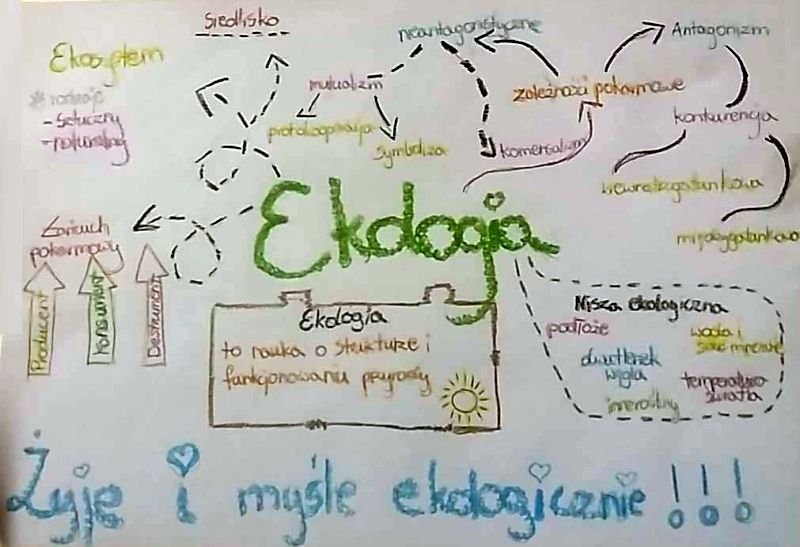 siedlisko
neantagonistyczne
Antagonizm
Ekosystem
mutualizm
zależności pokarmowe
* rodzaje
- sztuczny
- naturalny
protokooperacja
symbioza
komensalizm
konkurencja
wewnątrzgatunkowa
międzygatunkowa
Ekologia
Łańcuch
pokarmowy
Producent
Konsument
Destruent
Ekologia
to nauka o strukturze i
funkcjonowaniu przyrody
Nisza ekologiczna
podłoże
woda i
sole mineralne
dwutlenek
węgla
temperatura
światła
inne rośliny
Żyję i myślę ekologicznie!!!